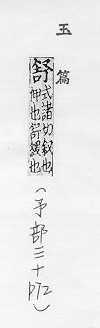 玉篇
舒
式諸切叙也
伸也舒緩也
(予部三十 P72)